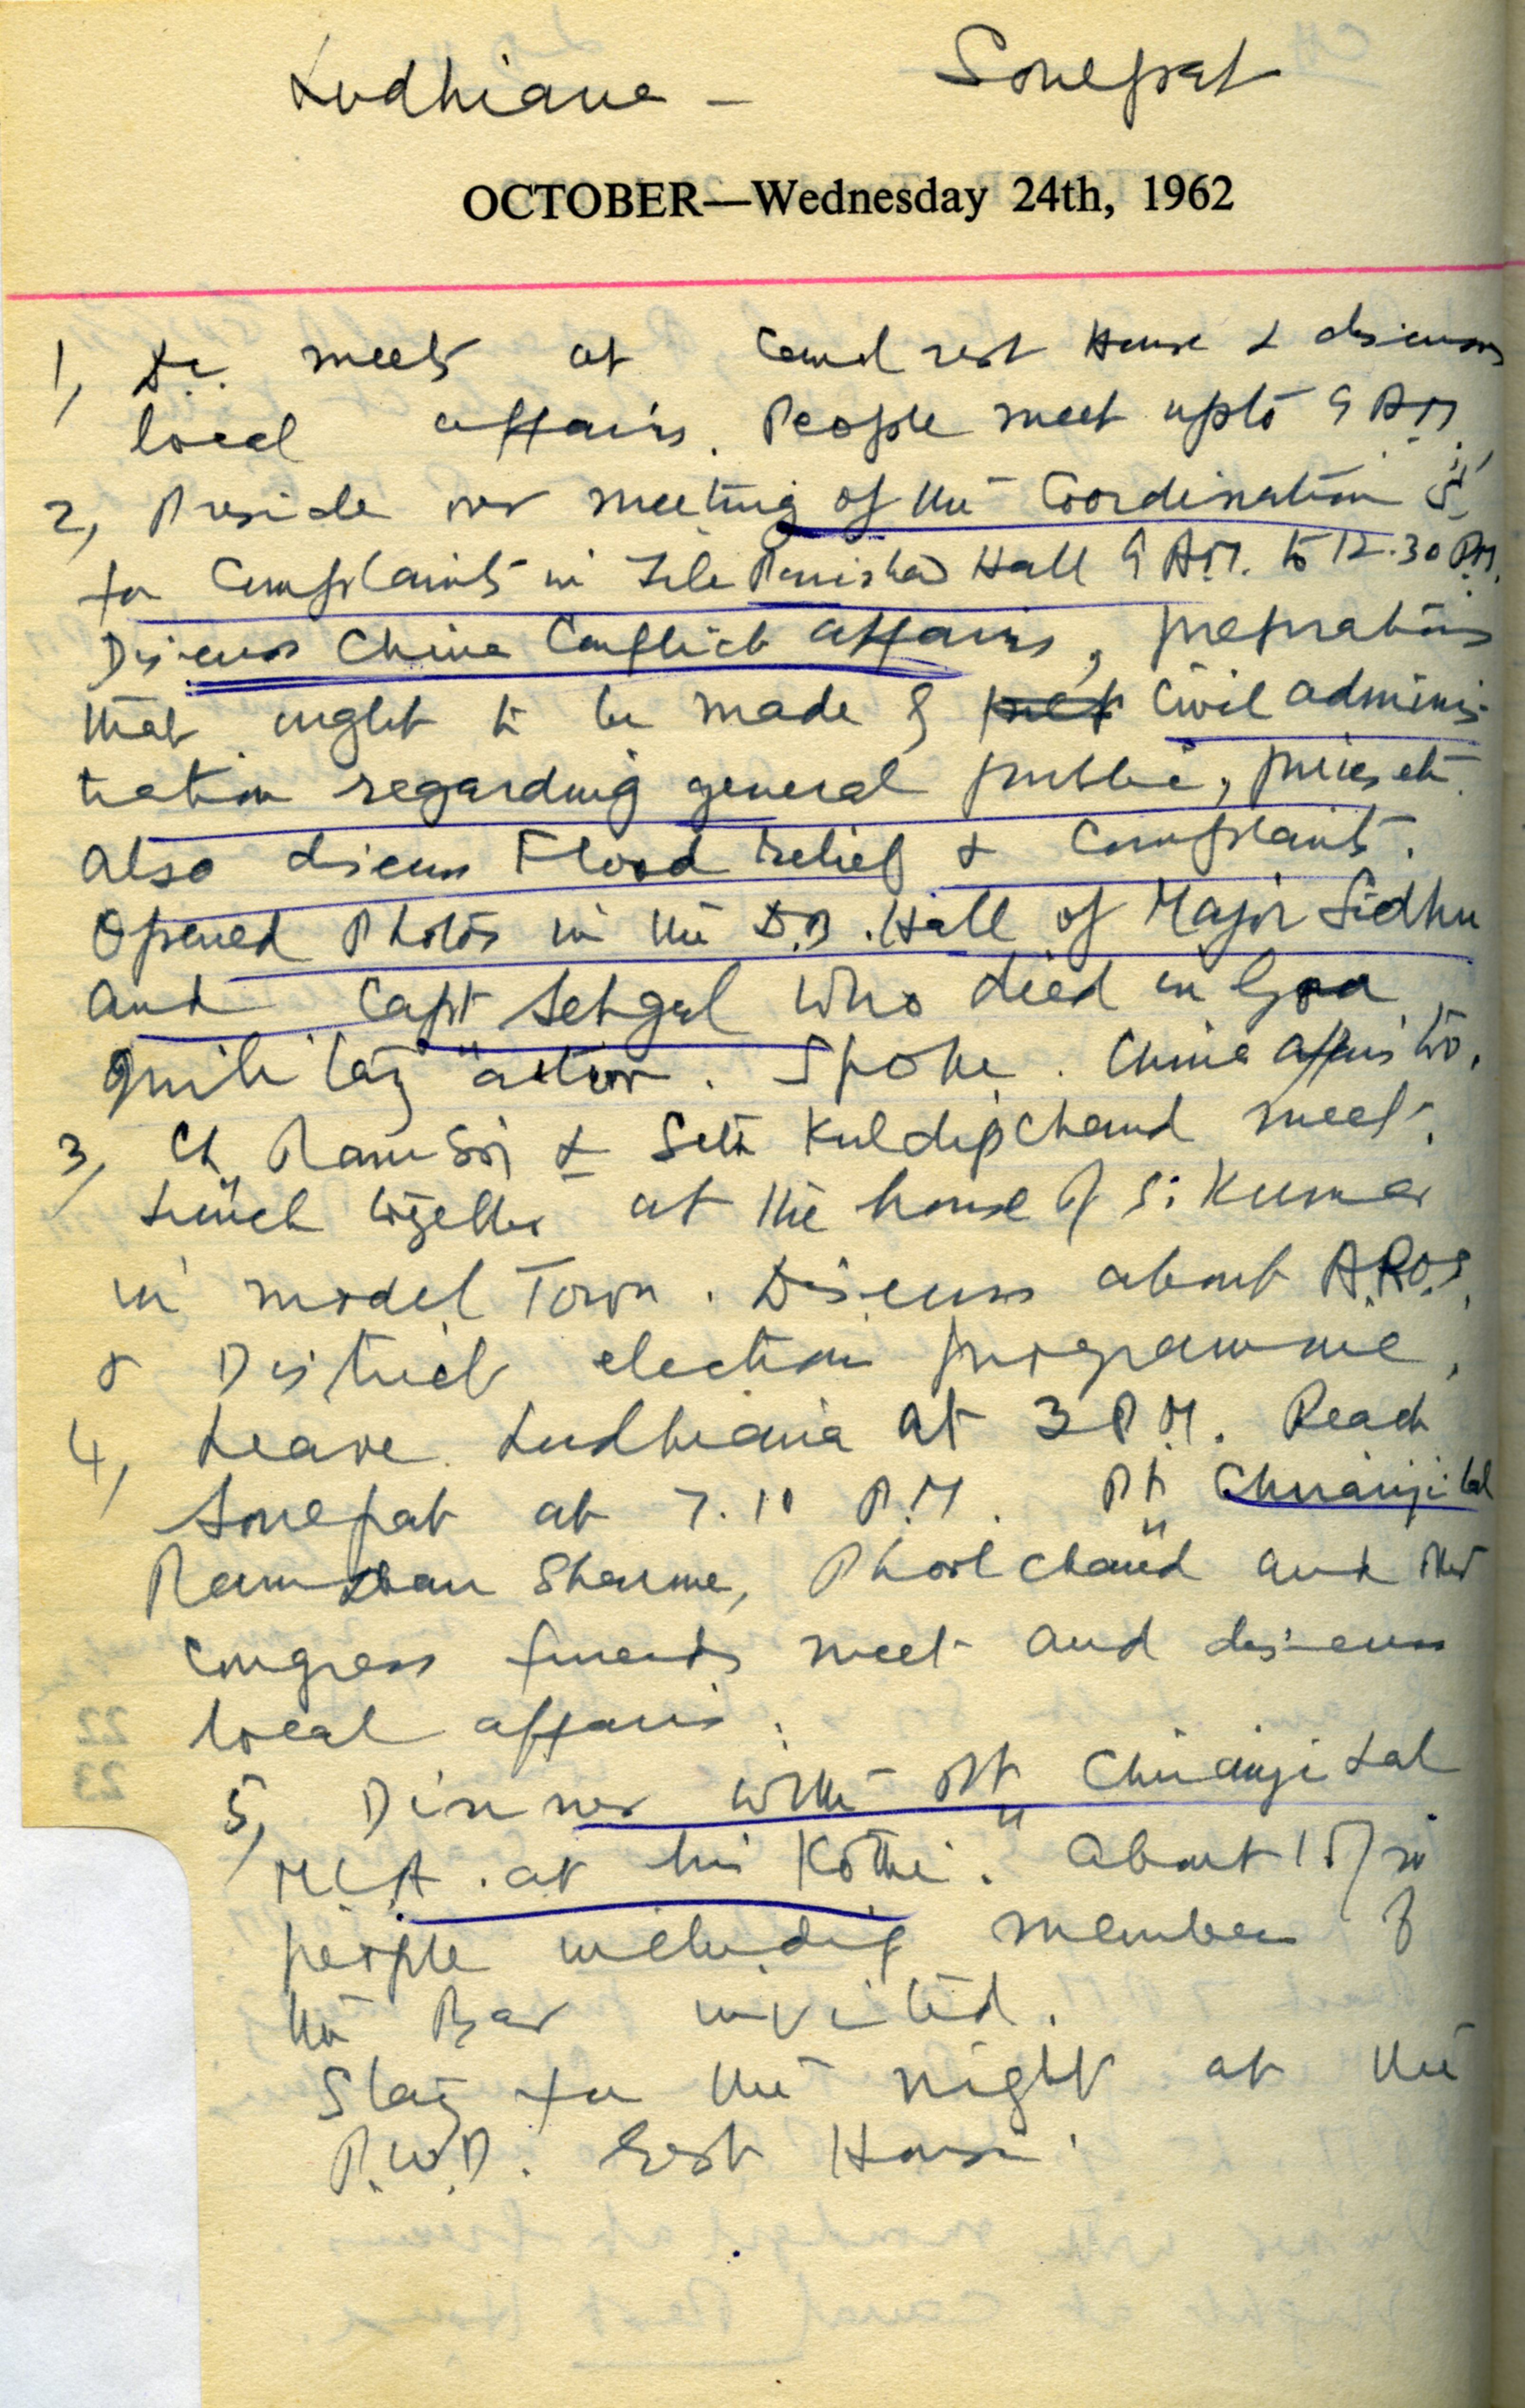 Ludhiana - Sonepat
OCTOBER—Wednesday 24th, 1962
1, D.C. meets at Canal rest House & discuss
local affairs. People meet upto 9 A.M.
2, Preside over meeting of the Coordination
for Complaints in Zila Parishad Hall 9 A.M. to 12.30 P.M.
Discuss China Conflict affairs, preprations
that ought to be made & Civil adminis-
tration regarding general public, prices etc.
also discuss Flood relief & Complaints.
Opened Photos in the D.B. Hall of Major Sidhu
and Capt Sehgal who died in Goa
military action. Spoke. China affairs too.
3, Ch. Ram Sri & Seth Kuldip Chand meet.
Lunch together at the house of S. Kumar
in model Town. Discuss about A.R.O.S.
& District election programme.
4, Leave Ludhiana at 3 P.M. Reach
Sonepat at 7.10 P.M. Pt. Chiranji Lal
Ram Sharma, Phool Chand and other
Congress friends meet and discuss
local affairs.
5, Dinner with Pt. Chiranji Lal
M.L.A. at his Kothi. About 15/20
people including members of
the Bar invited.
Stay for the night at the
P.W.D. Rest House.
22
23